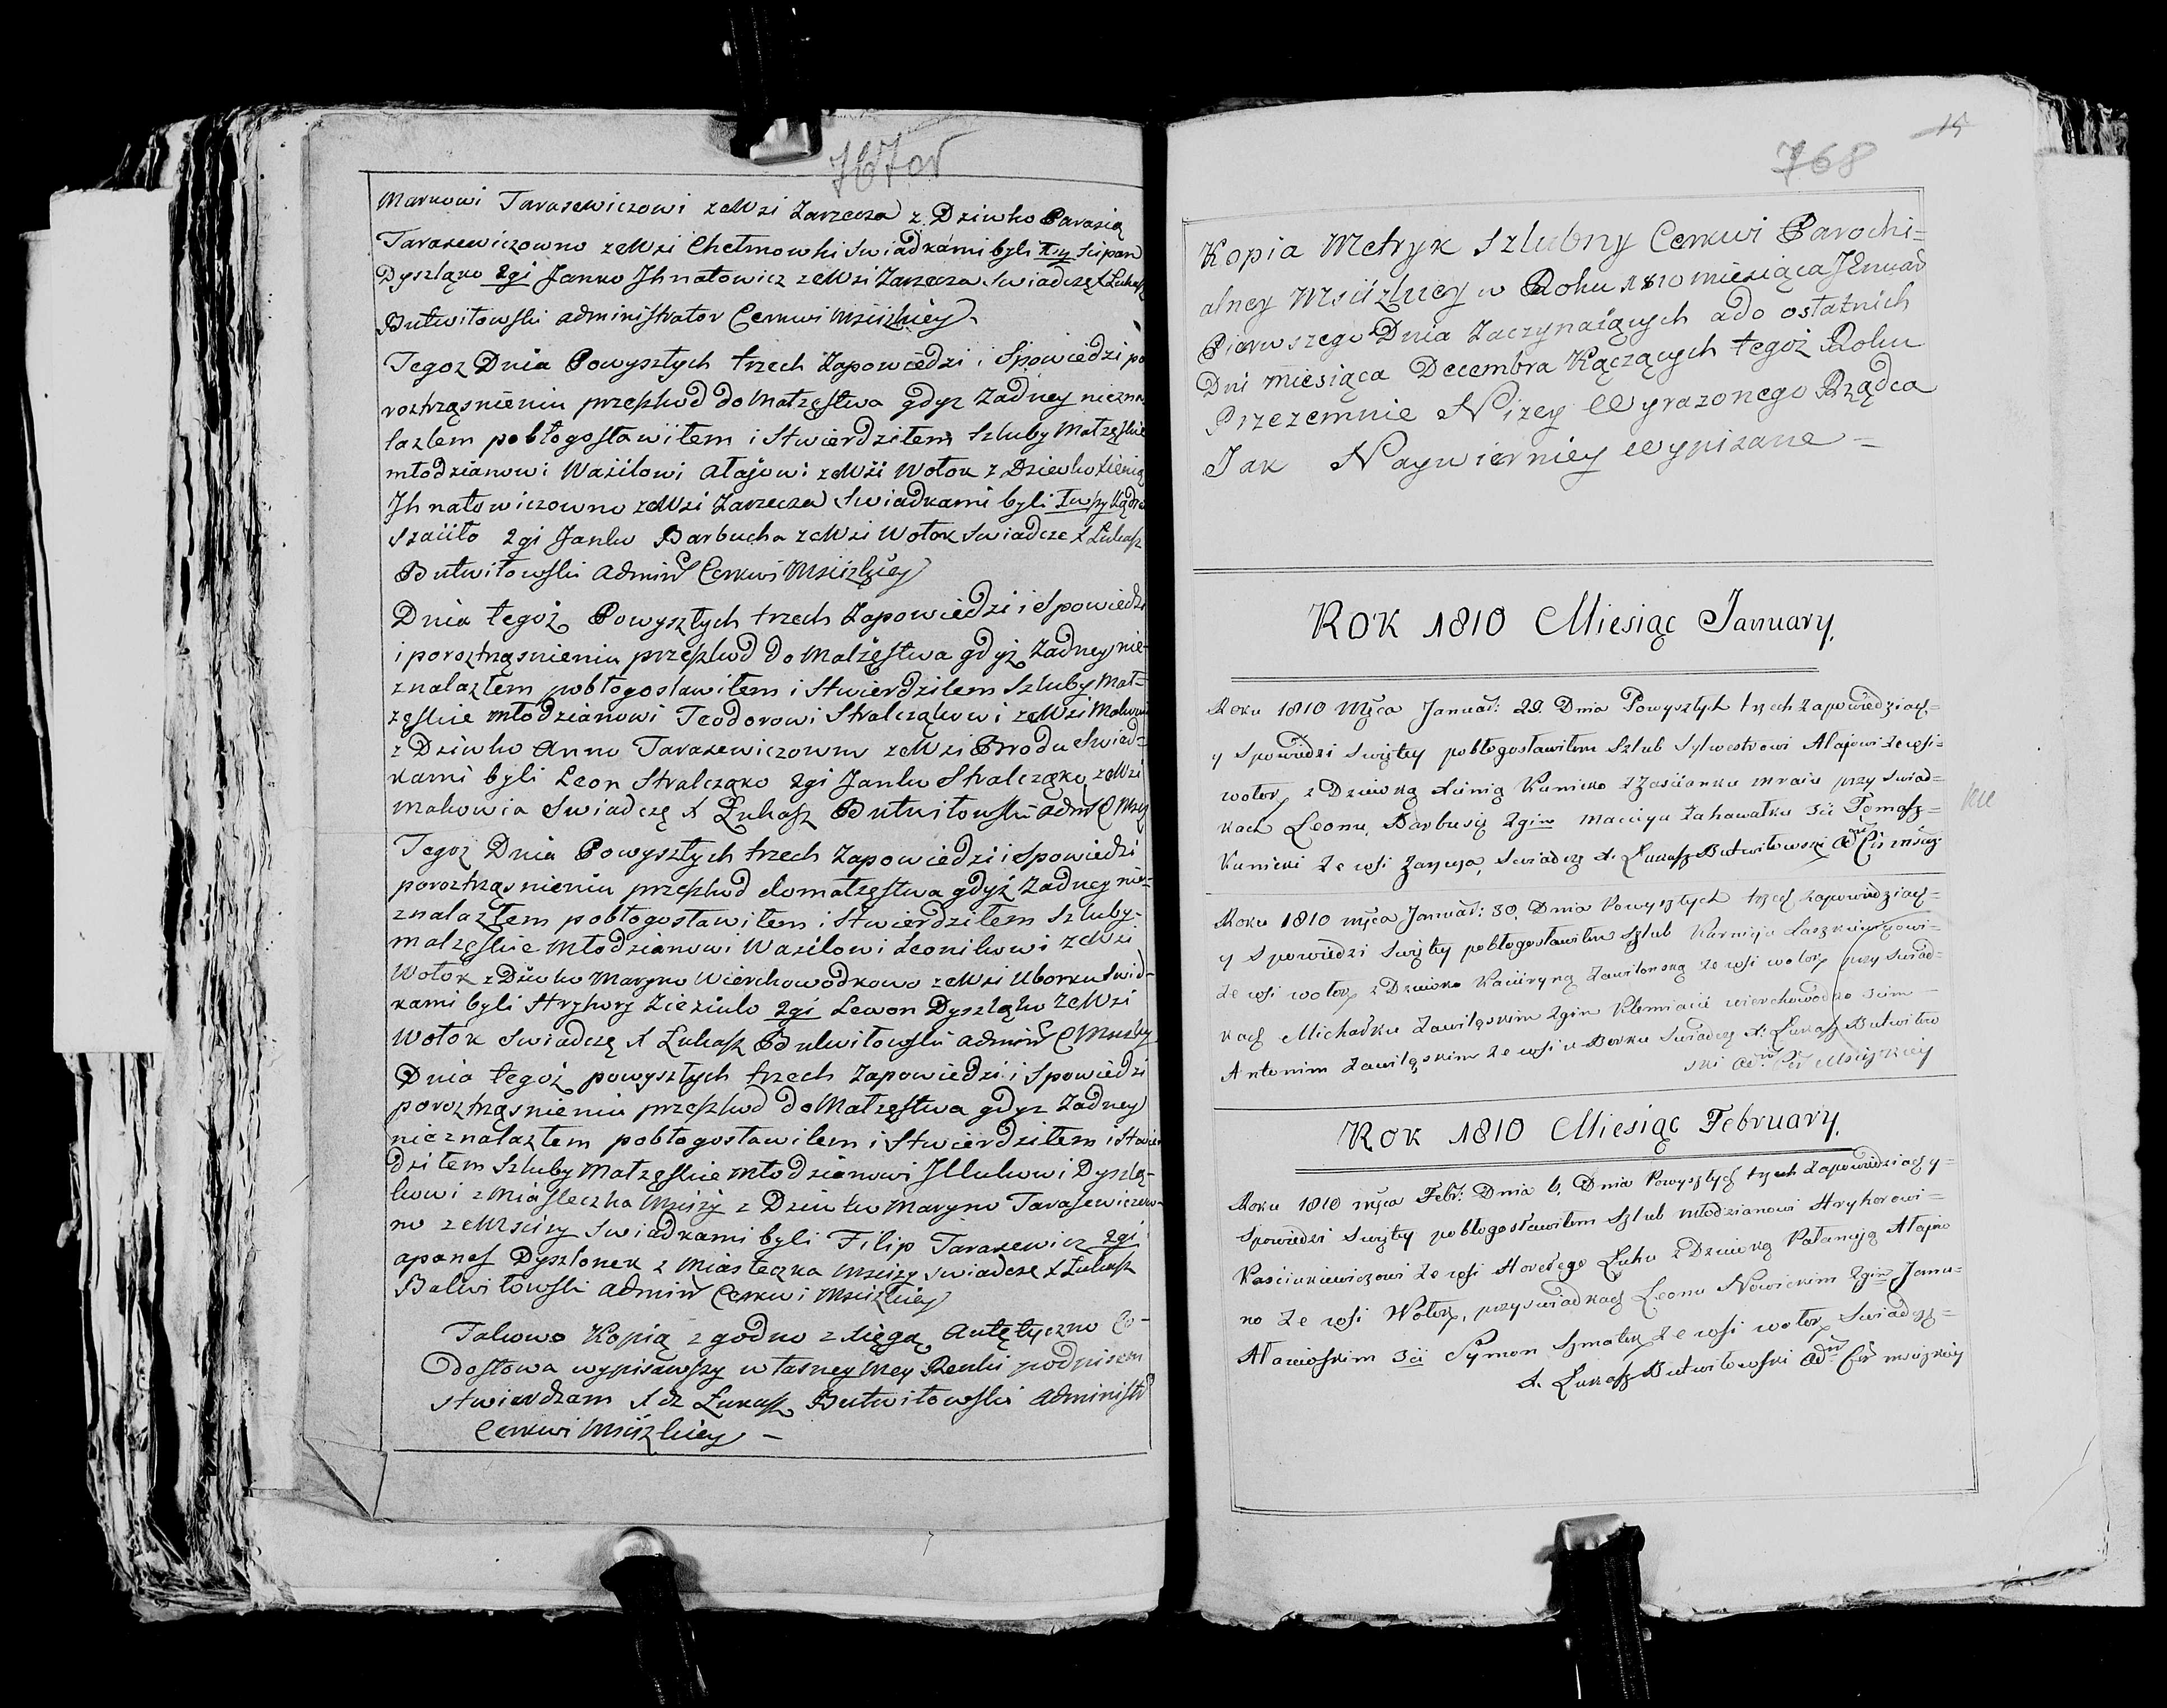 767об
Markowi Tarasewiczowi zeWsi Zarzecza z Dziwko Parasią
Tarasewiczowno zeWsi Chełmowki Swiadkami byli Iszy Scipan
Dyszląko 2gi Janko Jhnatowicz zeWsi Zarzecza Swiadczę X Łukasz
Butwiłowski administrator Cerkwi Mscizkiey
Tegoz Dnia Powyszłych trzech Zapowiedzi i Spowiedzi po
roztrząsnieniu przeszkod do Małzęstwa gdyz Zadney niezna
lazłem pobłogosławiłem i Stwierdziłem Szluby Małzęskie
młodzianowi Wasilowi Ałajowi zeWsi Wołok z Dziewko Xienią
Jhnatowiczowno zeWsi Zarzecza Swiadkami byli
Szaiiło 2gi Janko Barbucha zeWsi Wołok Swiadcze X Łukasz
Butwiłowski Admin Cerkwi Mscizkiey
Dnia tegoż Powyszłych trzech Zapowiedzi i Spowiedzi
i poroztrząsnieniu przeszkod do Małżęstwa gdyż Zadney nie-
znalazłem pobłogosławiłem i Stwierdziłem Szluby Mał=
zęskie młodzianowi Teodorowi Stralcząkowi zeWsi
z Dziwko Anno Tarasewiczowno zeWsi Brodu Swiad=
kami byli Leon Stralcząko 2gi Janko Stralcząko zeWsi
makowia Swiadczę X Łukasz Butwiłowski Adm C Msci
Tegoz Dnia Powyszłych trzech Zapowiedzi i Spowiedzi
poroztrząsnieniu przeszkod domałzęstwa gdyż Zadney nie=
znalazłem pobłogosławiłem i Stwierdziłem Szluby-
małzęskie Młodzianowi Wasilowi Leonikowi zeWsi
Wołok z Dziwko Maryno Wierchowodkowo zeWsi Uborku Swid-
kami byli Hryhory Zieziulo 2gi Lewon Dyszląko ZeWsi
Wołok Swiadczę X Łukasz Butwiłowski admin C Mscizkiy
Dnia tegoż powyszłych trzech Zapowiedzi i Spowiedzi
poroztrząsnieniu przeszkod do Małzęstwa gdyz Zadney
nieznalazłem pobłogosławiłem i Stwierdziłem i Stwier
dziłem Szluby Małzęskie Młodzianowi Jllukowi Dyszlą-
kowi z Miasteczka Msciży z Dziwko Maryno Tarasewiczow-
no zeMscizy Swiadkami byli Filip Tarasewicz 2gi
apanas Dyszlonek z Miasteczka Mscizy swiadcze X Łukasz
Butwiłowski Admin Cerkwi Mscizkiey
Takowo Kopią zgodno z xięgą Autętyczno Co-
dosłowa wypisawszy własney Mey Renki podpisem
stwierdzam X dz Łukasz Butwiłowski Administr
Cerkwi Msciizkiey —
15
768
Kopia Metryk Szlubny Cerkwi Parochi=
alney Msciizkiey w Roku 1810 miesiąca JEnuar
Pierwszego Dnia Zaczynaiących ado ostatnich
Dni miesiąca Decembra Kączących tegoż Roku
Przezemnie Nizey Wyrazonego Rządca
Jak Naywierniey Wypisane =
ROK 1810 Miesiąc January.
Roku 1810 Mśca Januar: 29. Dnia Powyszłych trzech zapowiedziach=
y Spowiedzi Swiętey pobłogosławiłem Szlub Sylwestrowi Ałajowi ze wsi=
wołok z Dziewką Xienią Kunicko z Zascianku mraiu przy swiad=
kach Leonu Barbusię 2gim Macieju Zahawałku 3ci Tomasz=
Kunicki ze wsi Zarzecza, Swiadczę X. Łukasz Butwiłowski
Roku 1810 Mśca Januar: 30. Dnia Powyszłych trzech zapowiedziach=
y Spowiedzi Swiętey pobłogosławiłem Szlub Karnieju Łaszkiewiczowi=
ze wsi wołok z Dziewko Kaciryną Zawilonską ze wsi wołok przy swiad=
kach Michałku Zawiląskim 2gim Klemiacie wierchowodko 3cim
Antonim Zawiląskim ze wsi u Borku Swiadczę X. Łukasz Butwiłow
ski Ad Cer Msciizkiey
ROK 1810 Miesiąc February.
Roku 1810 mśca Febr: Dnia 6. Dnia Powyszłych trzech Zapowiedziach y=
Spowiedzi Swiętey pobłogosławiłem Szlub młodzianowi Hryhorowi=
Kasciukiewiczowi ze wsi Horełego Łuhu z Dziewką Pałanieją Ałajo
no ze wsi Wołok, przyswiadkach Leonu Nowickim 2gim Janu=
Ałacioskim 3ci Symon Szmatok ze wsi wołok Swiadczę=
X. Łukasz Butwiłowski Ad Cer msciizkiey